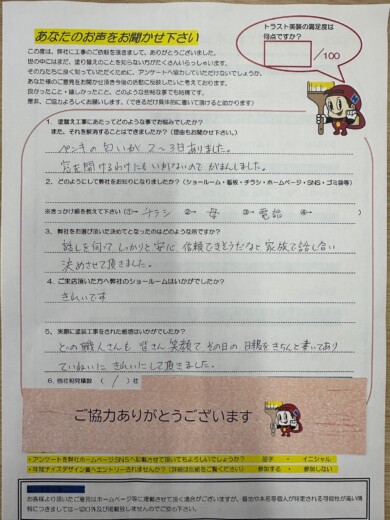 あなたのお声をお聞かせ下さい
トラスト美装の満足度は
何点ですか？
/100
この度は、弊社に工事のご依頼を頂きまして、ありがとうございました。
世の中にはまだ、塗り替えのことを知らない方がたくさんいらっしゃいます。
その方たちに良く知っていただくために、アンケートへ協力していただけないでしょうか。
あなた様のご意見をお聞かせ頂き今後の活動に役だたしたいと考えております。
良かったこと・嬉しかったこと、どのような些細な事でも結構です。
是非、ご協力よろしくお願いします。（できるだけ具体的に書いて頂けると助かります）
1．塗替え工事にあたってどのような事でお悩みでしたか？
また、それを解消することはできましたか？（理由もお聞かせ下さい。）
ペンキの匂いが 2～3日ありました。
窓を開けるわけにもいかないのでがまんしました。
2．どのようにして弊社をお知りになりましたか？（ショールーム・看板・チラシ・ホームページ・SNS・ゴミ袋等）
※きっかけ順を教えて下さい（①→ チラシ ②→ 母 ③→ 電話 ④→ ）
3．弊社をお選び頂いた決めてとなったのはどのような所ですか？
話しを伺ってしっかりと安心 信頼できそうだなと 家族で話し合い
決めさせて頂きました。
4．ご来店頂いた方へ弊社のショールームはいかがでしたか？
きれいです
5．実際に塗装工事をされた感想はいかがでしたか？
どの職人さんも 皆さん笑顔で その日の 日報をきちんと書いてあり
ていねいに きれいにして頂きました。
6．他社相見積数 （ 1 ）社
ご協力ありがとうございます
・アンケートを弊社ホームページSNSへ記載させて頂いてもよろしいでしょうか？ 苗字 ・ イニシャル
参加する ・ 参加しない